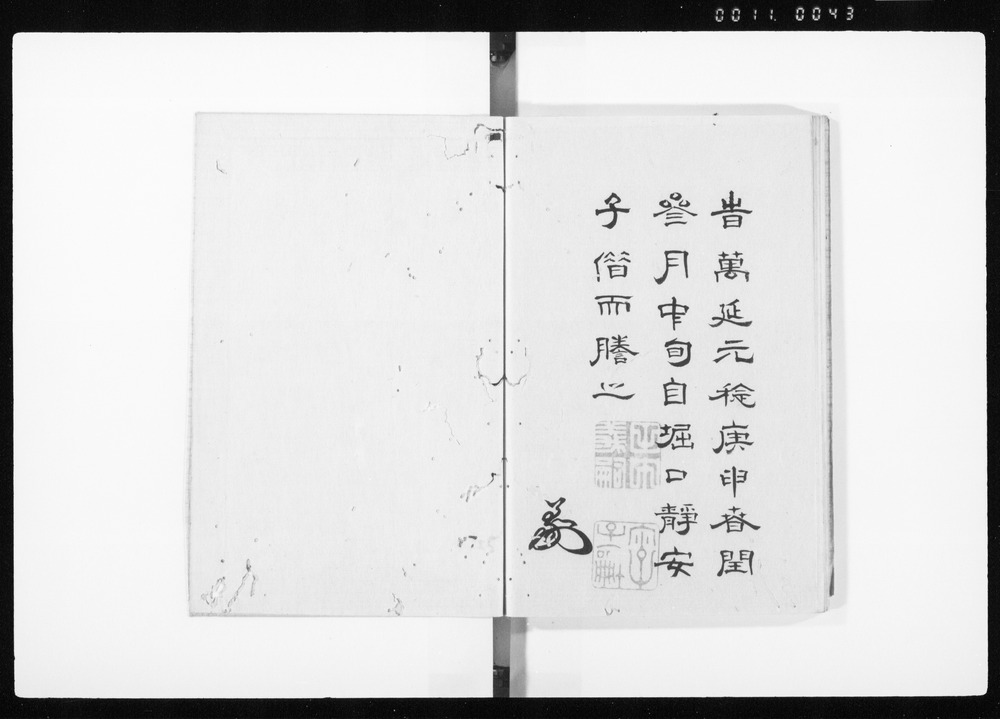 0011. 0043
旹萬延元稔庚申春閏
叄月中旬自堀口靜安
子借而謄之